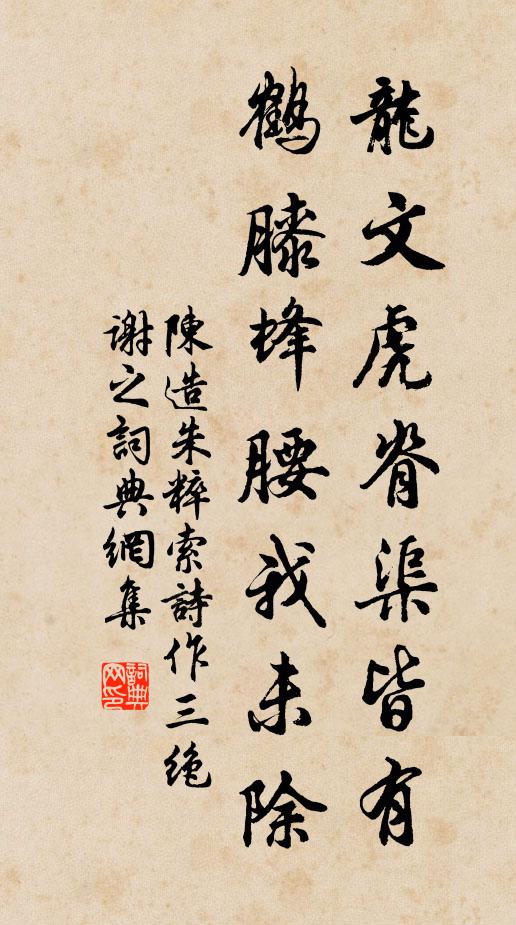 龍文虎脊渠皆有
鶴膝蜂腰我未除
陳造朱粹索詩作三絶
謝之詞典網集
詞典
网印